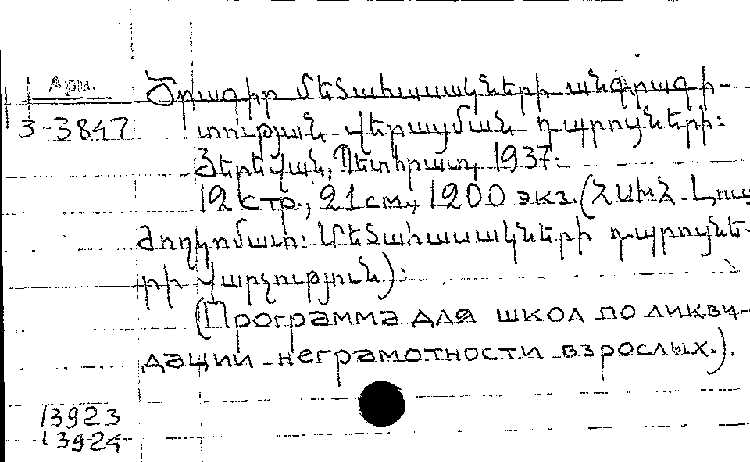 Арм.
Ծրագիր մեծահասակների անգրագի-
3-3847 տության վերացման դպրոցների:
Յերեվան, Պետհրատ, 1937:
12 стр., 21 см, 1200 экз. (ՀՍԽՀ Լուս
ժողկոմատ: Մեծահասակների դպրոցնե-
րի վարչություն):
(Программа для школ по ликви-
дации неграмотности взрослых.).
13923
13924